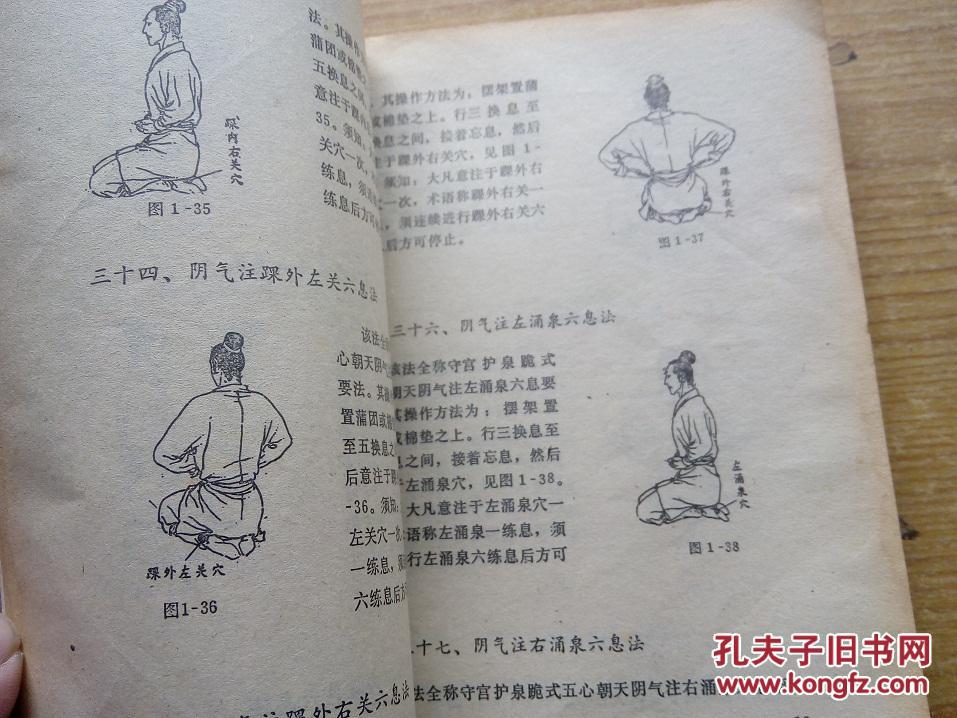 法。其操作
蒲团或棉垫之
五换息之间，
意注于踝内
35。须知：
关穴一次，
练息，须
练息后方可
踝内右关穴
图1-35
三十四、阴气注踝外左关六息法
该法全
心朝天阴气
要法。其操
置蒲团或棉
至五换息之
后意注于踝
-36。须知：
左关穴一次
一练息，须
六练息后方
踝外左关穴
图1-36
注踝外右关六息法
其操作方法为，摆架置蒲
棉垫之上。行三换息至
息之间，接着忘息，然后
于踝外右关穴，见图1-
须知：大凡意注于踝外右
一次，术语称踝外右关一
，须连续进行踝外右关六
后方可停止。
踝外右关穴
图1-37
三十六、阴气注左涌泉六息法
该法全称守宫护泉跪式
朝天阴气注左涌泉六息要
其操作方法为：摆架置
或棉垫之上。行三换息至
息之间，接着忘息，然后
于左涌泉穴，见图1-38。
大凡意注于左涌泉穴一
语称左涌泉一练息，须
行左涌泉六练息后方可
左涌泉穴
图1-38
十七、阴气注右涌泉六息法
法全称守宫护泉跪式五心朝天阴气注右涌
孔夫子旧书网
www.kongfz.com